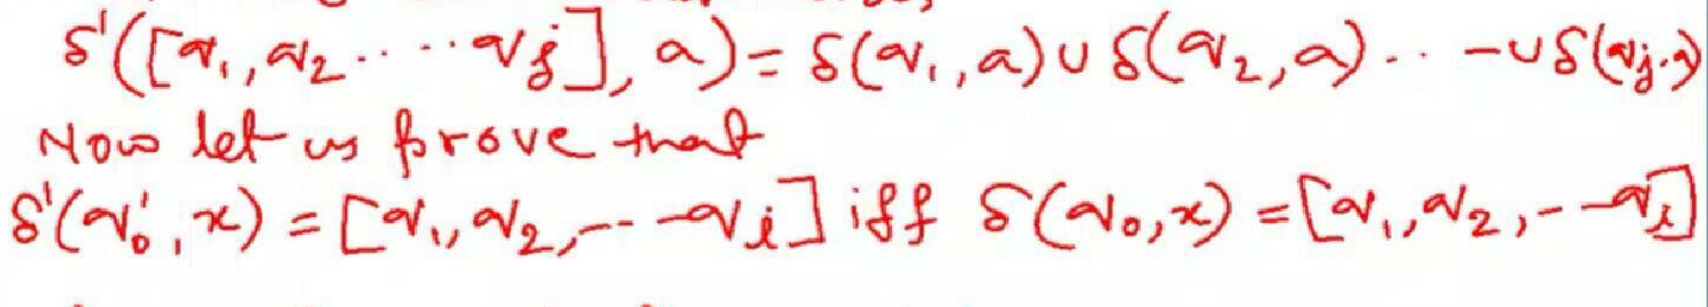 δ'([q₁, q₂ ..... qⱼ], a) = δ(q₁, a) ∪ δ(q₂, a) .. - ∪ δ(qⱼ, a)
Now let us prove that
δ'(q₀', x) = [q₁, q₂, --- qᵢ] iff δ(q₀, x) = [q₁, q₂, -- qᵢ]